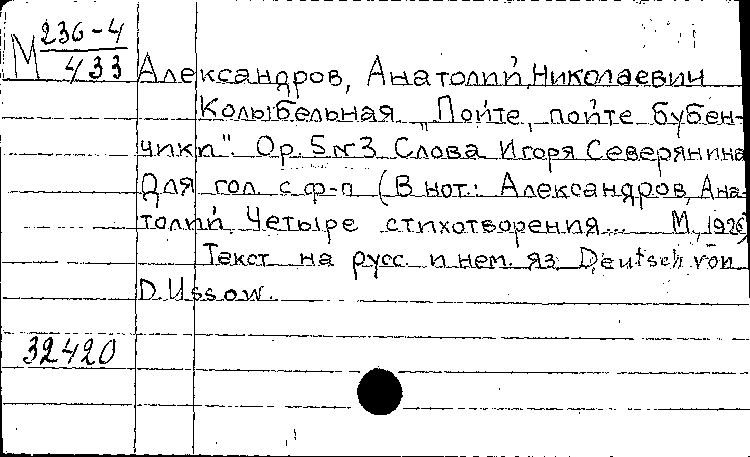 М 236-4
433
Александров, Анатолий Николаевич
Колыбельная „Пойте, пойте бубен-
чики". Ор. 5 №3 Слова Игоря Северянина
Для гол. с ф-п (В нот.: Александров, Ана-
толий. Четыре стихотворения... М., 1926)
Текст на русс. и нем. яз. Deutsch von
D. Ussow.
32420